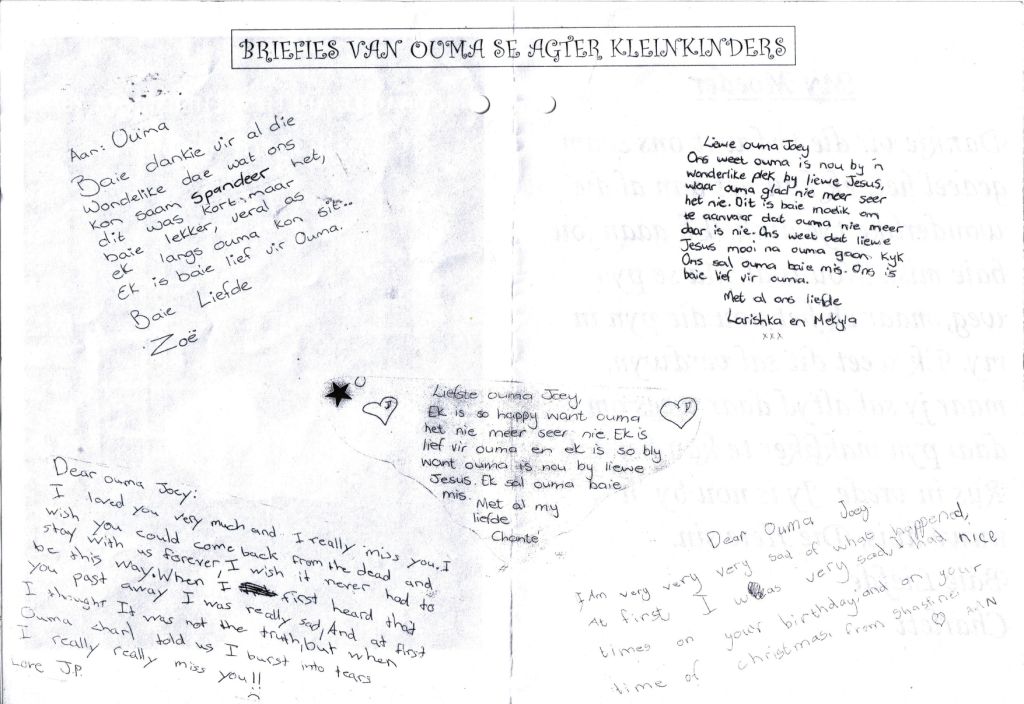 BRIEFIES VAN OUMA SE AGTER KLEINKINDERS
Aan: Ouma
Baie dankie vir al die
Wondelike dae wat ons
kon saam spandeer het,
dit was kort maar
baie lekker, veral as
ek langs ouma kon sit...
Ek is baie lief vir Ouma.
Baie Liefde
Zoë
Liewe ouma Joey
Ons weet ouma is nou by 'n
wonderlike plek by liewe Jesus,
waar ouma glad nie meer seer
het nie. Dit is baie moeilik om
te aanvaar dat ouma nie meer
daar is nie. Ons weet dat liewe
Jesus mooi na ouma gaan kyk
Ons sal ouma baie mis. Ons is
baie lief vir ouma.
Met al ons liefde
Larishka en Mekyla
xxx
Liefste ouma Joey,
Ek is so happy want ouma
het nie meer seer nie. Ek is
lief vir ouma en ek is so bly
want ouma is nou by liewe
Jesus. Ek sal ouma baie
mis.
Met al my
liefde
Chanté
Dear ouma Joey:
I loved you very much and I really miss you. I
wish you could come back from the dead and
stay with us forever, I wish it never had to
be this way. When I first heard that
you past away I was really sad, And at first
I thought It was not the truth, but when
Ouma charl told us I burst into tears
I really really miss you!!
Love J.P.
Dear Ouma Joey
I Am very very very sad of what happened,
At first I was very sad, I had nice
times on your birthday, and on your
time of christmas. from
My Moeder